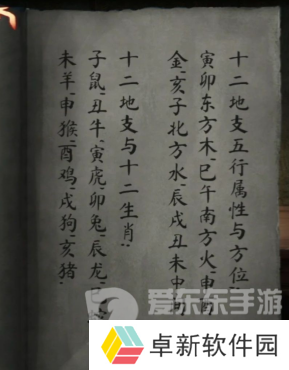 十二地支五行属性与方位
寅卯东方木、巳午南方火、申酉
金、亥子北方水、辰戌丑未中
十二地支与十二生肖
子鼠、丑牛、寅虎、卯兔、辰龙、巳
未羊、申猴、酉鸡、戌狗、亥猪
爱东东手游
卓新软件园